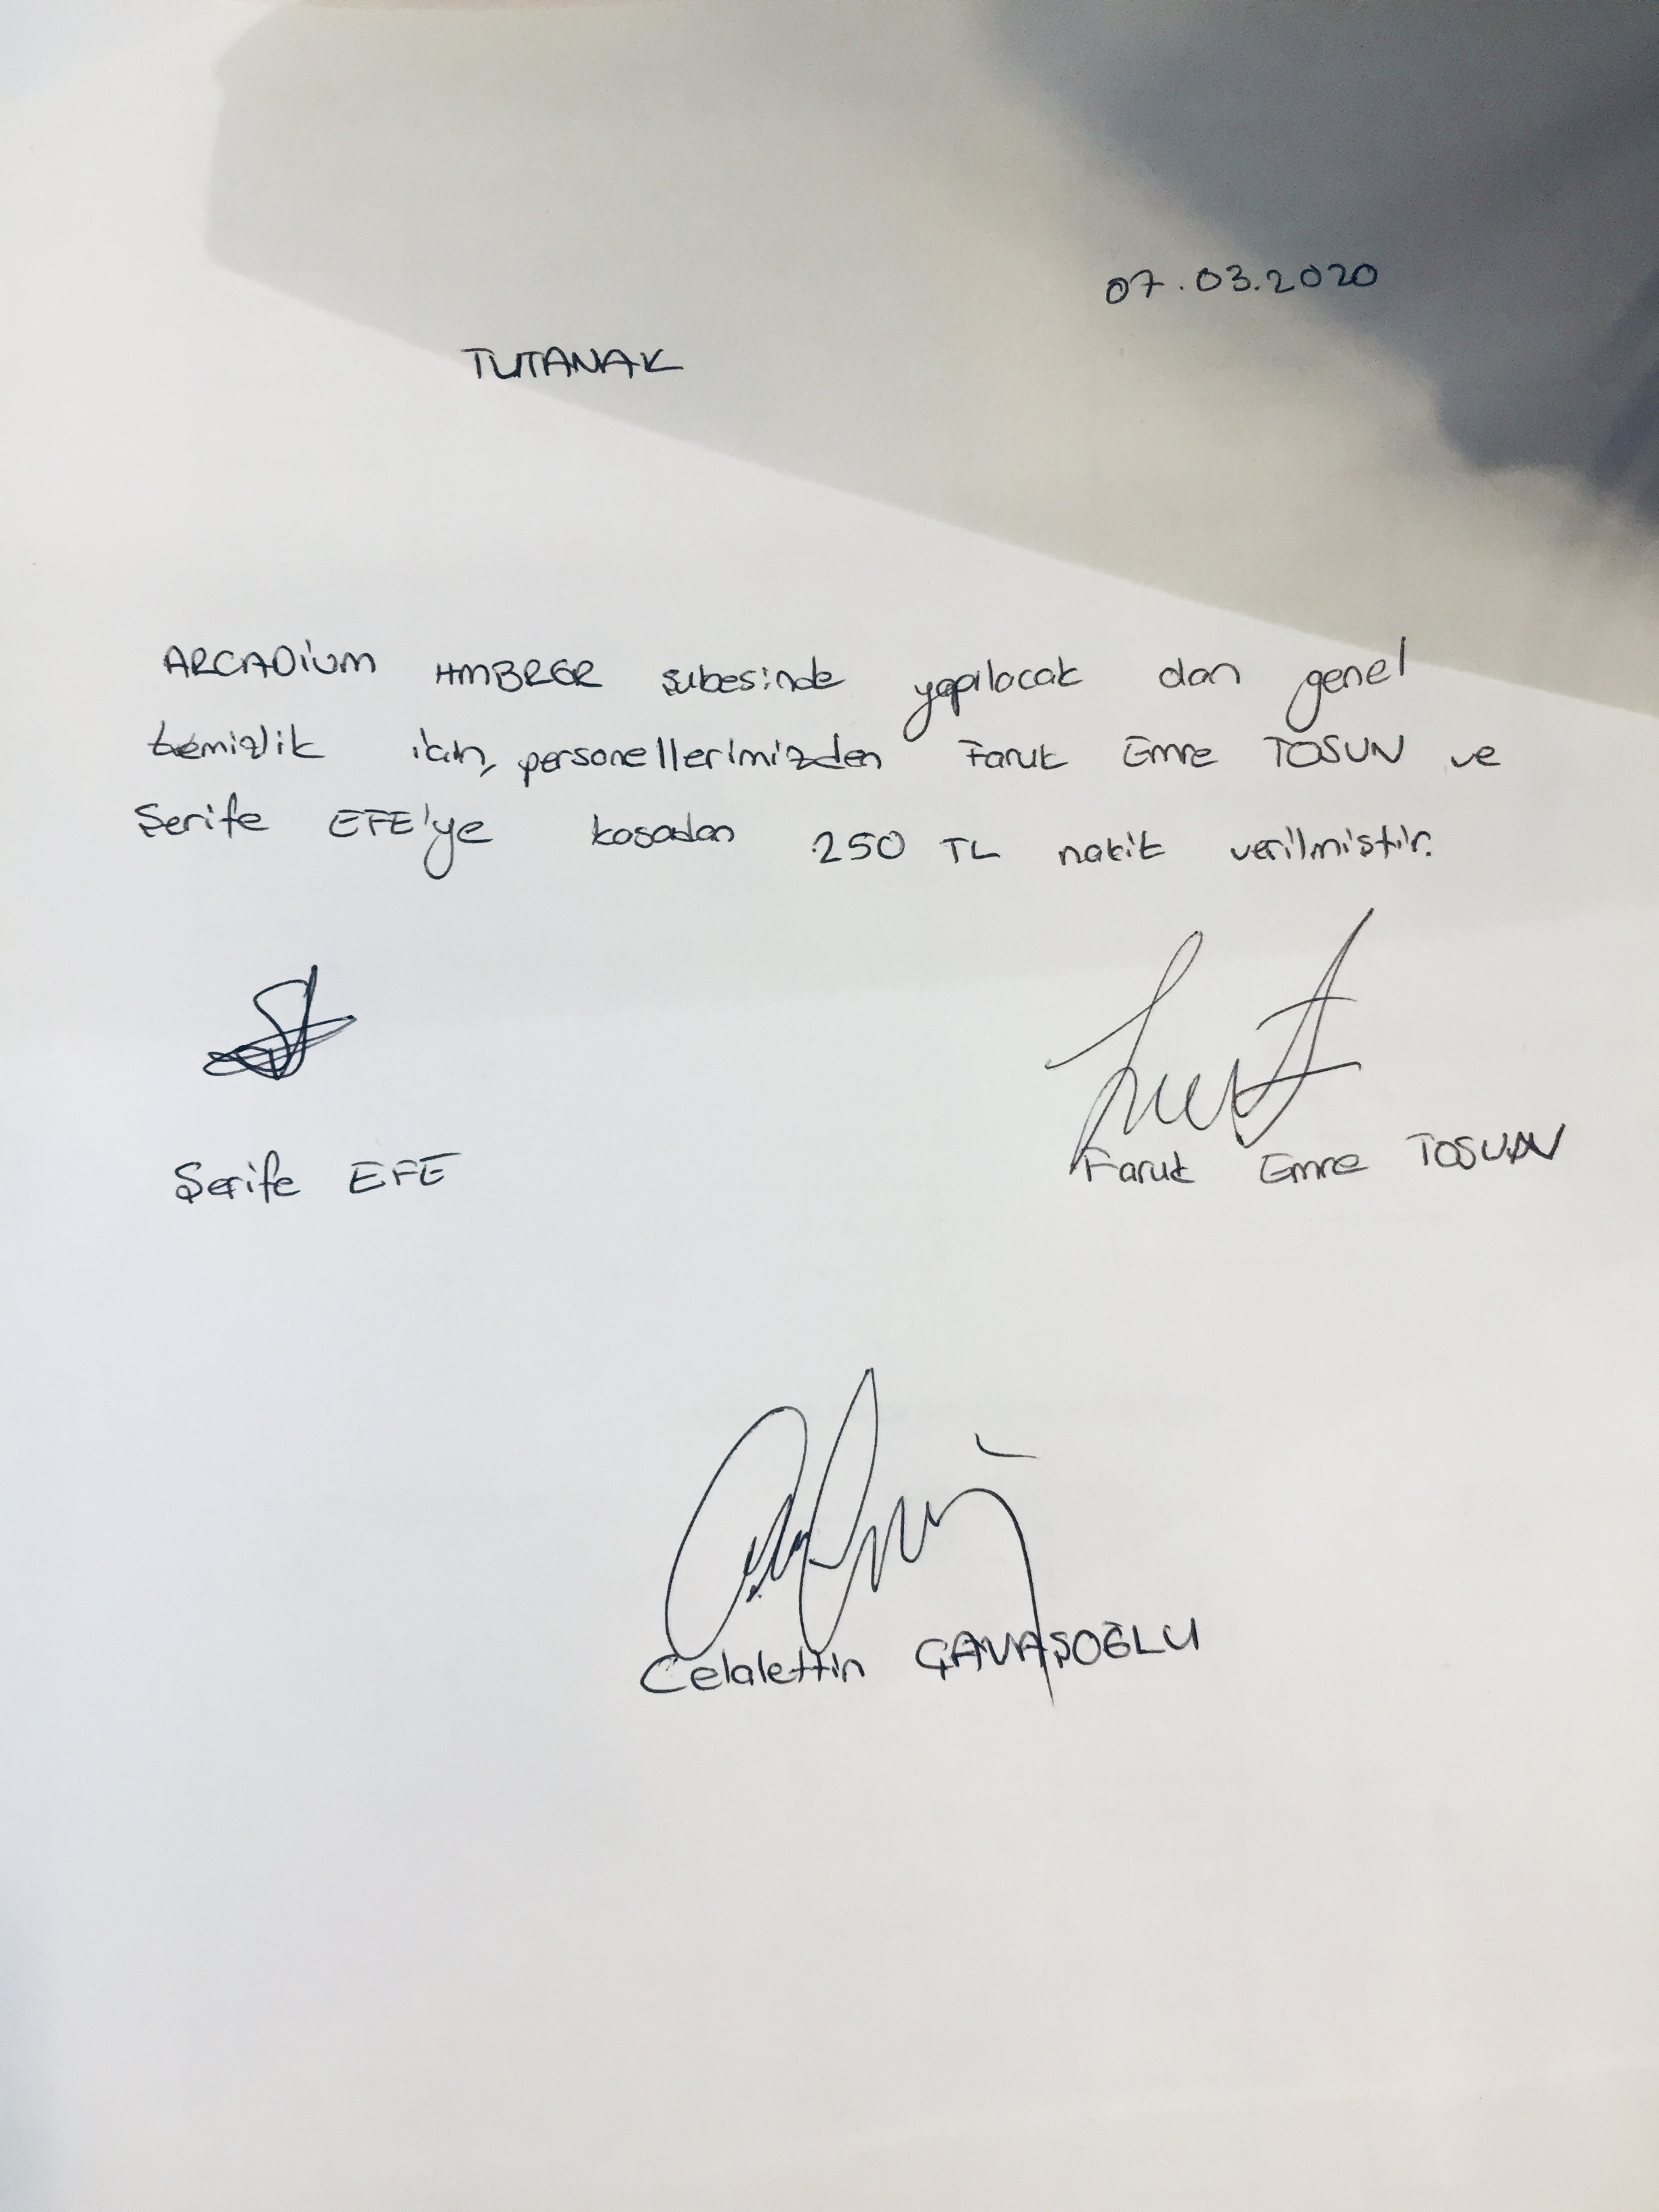 07.03.2020
TUTANAK
ARCADİUM HMBRGR şubesinde yapılacak olan genel
temizlik için, personellerimizden Faruk Emre TOSUN ve
Şerife EFE'ye kasadan 250 TL nakit verilmiştir.
Şerife EFE
Faruk Emre TOSUN
Celalettin ÇAVAŞOĞLU